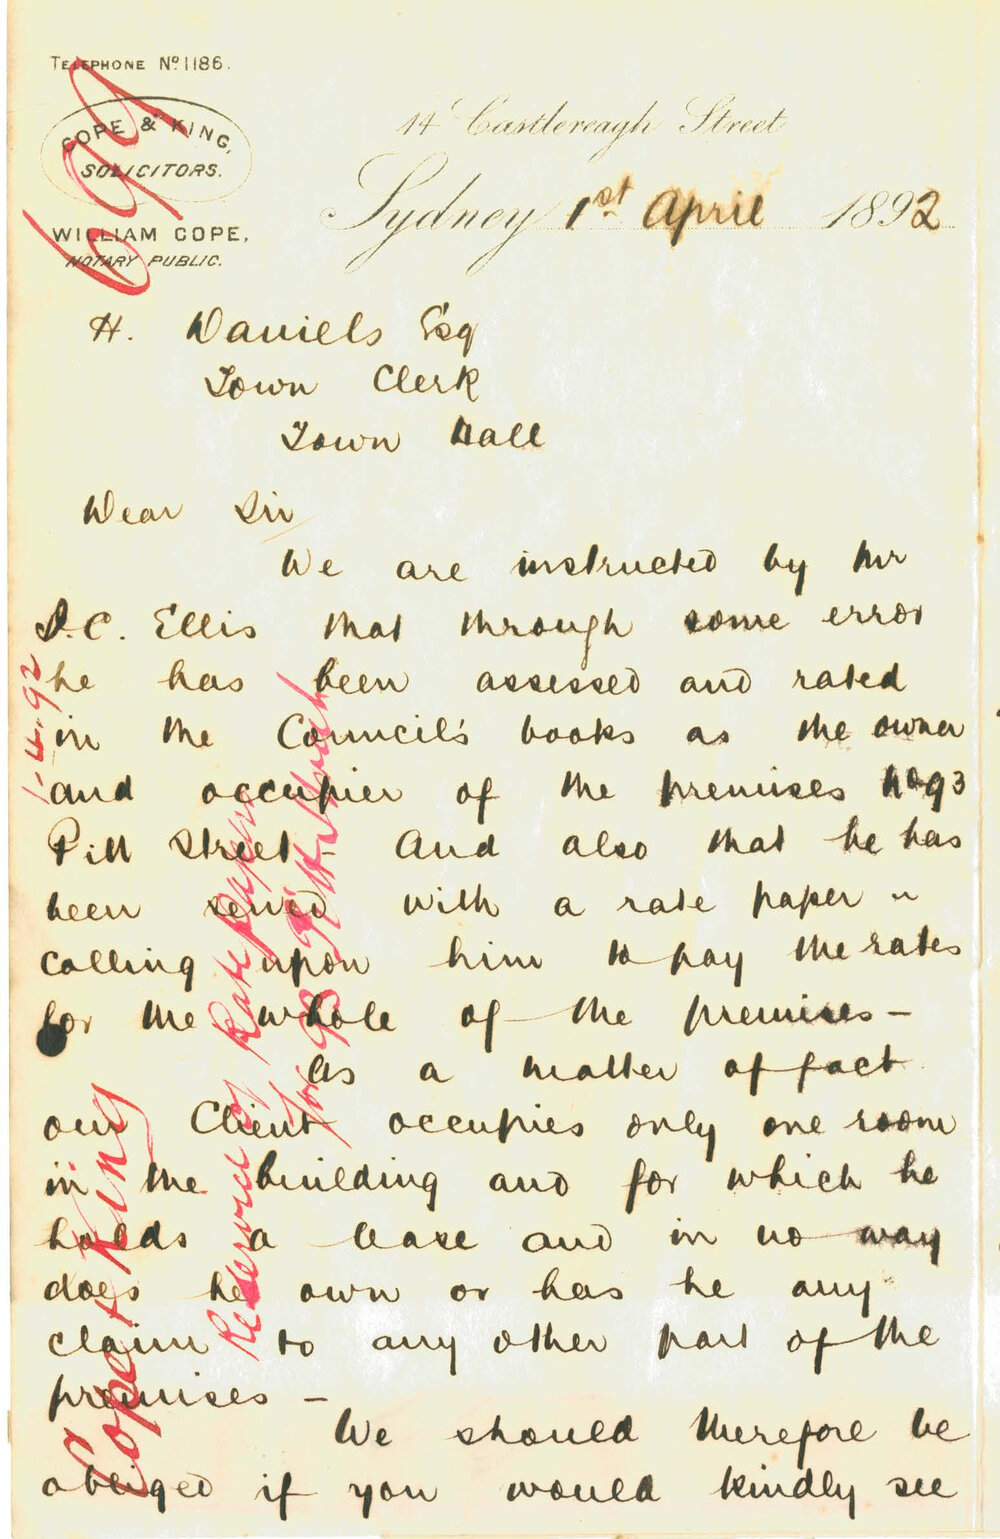 TELEPHONE No. 1186.
COPE & KING,
SOLICITORS.
WILLIAM COPE,
NOTARY PUBLIC.
699
14 Castlereagh Street
Sydney 1st April 1892
H. Daniels Esq
Town Clerk
Town Hall
Dear Sir
We are instructed by Mr
D.C. Ellis that through some error
he has been assessed and rated
in the Council's books as the owner
and occupier of the premises No 93
Pitt Street – And also that he has
been served with a rate paper
calling upon him to pay the rates
for the whole of the premises –
As a matter of fact
our Client occupies only one room
in the building and for which he
holds a lease and in no way
does he own or has he any
claim to any other part of the
premises –
We should therefore be
obliged if you would kindly see
1.4.92
Cope & King
Re service of Rate paper
for 93 Pitt Street